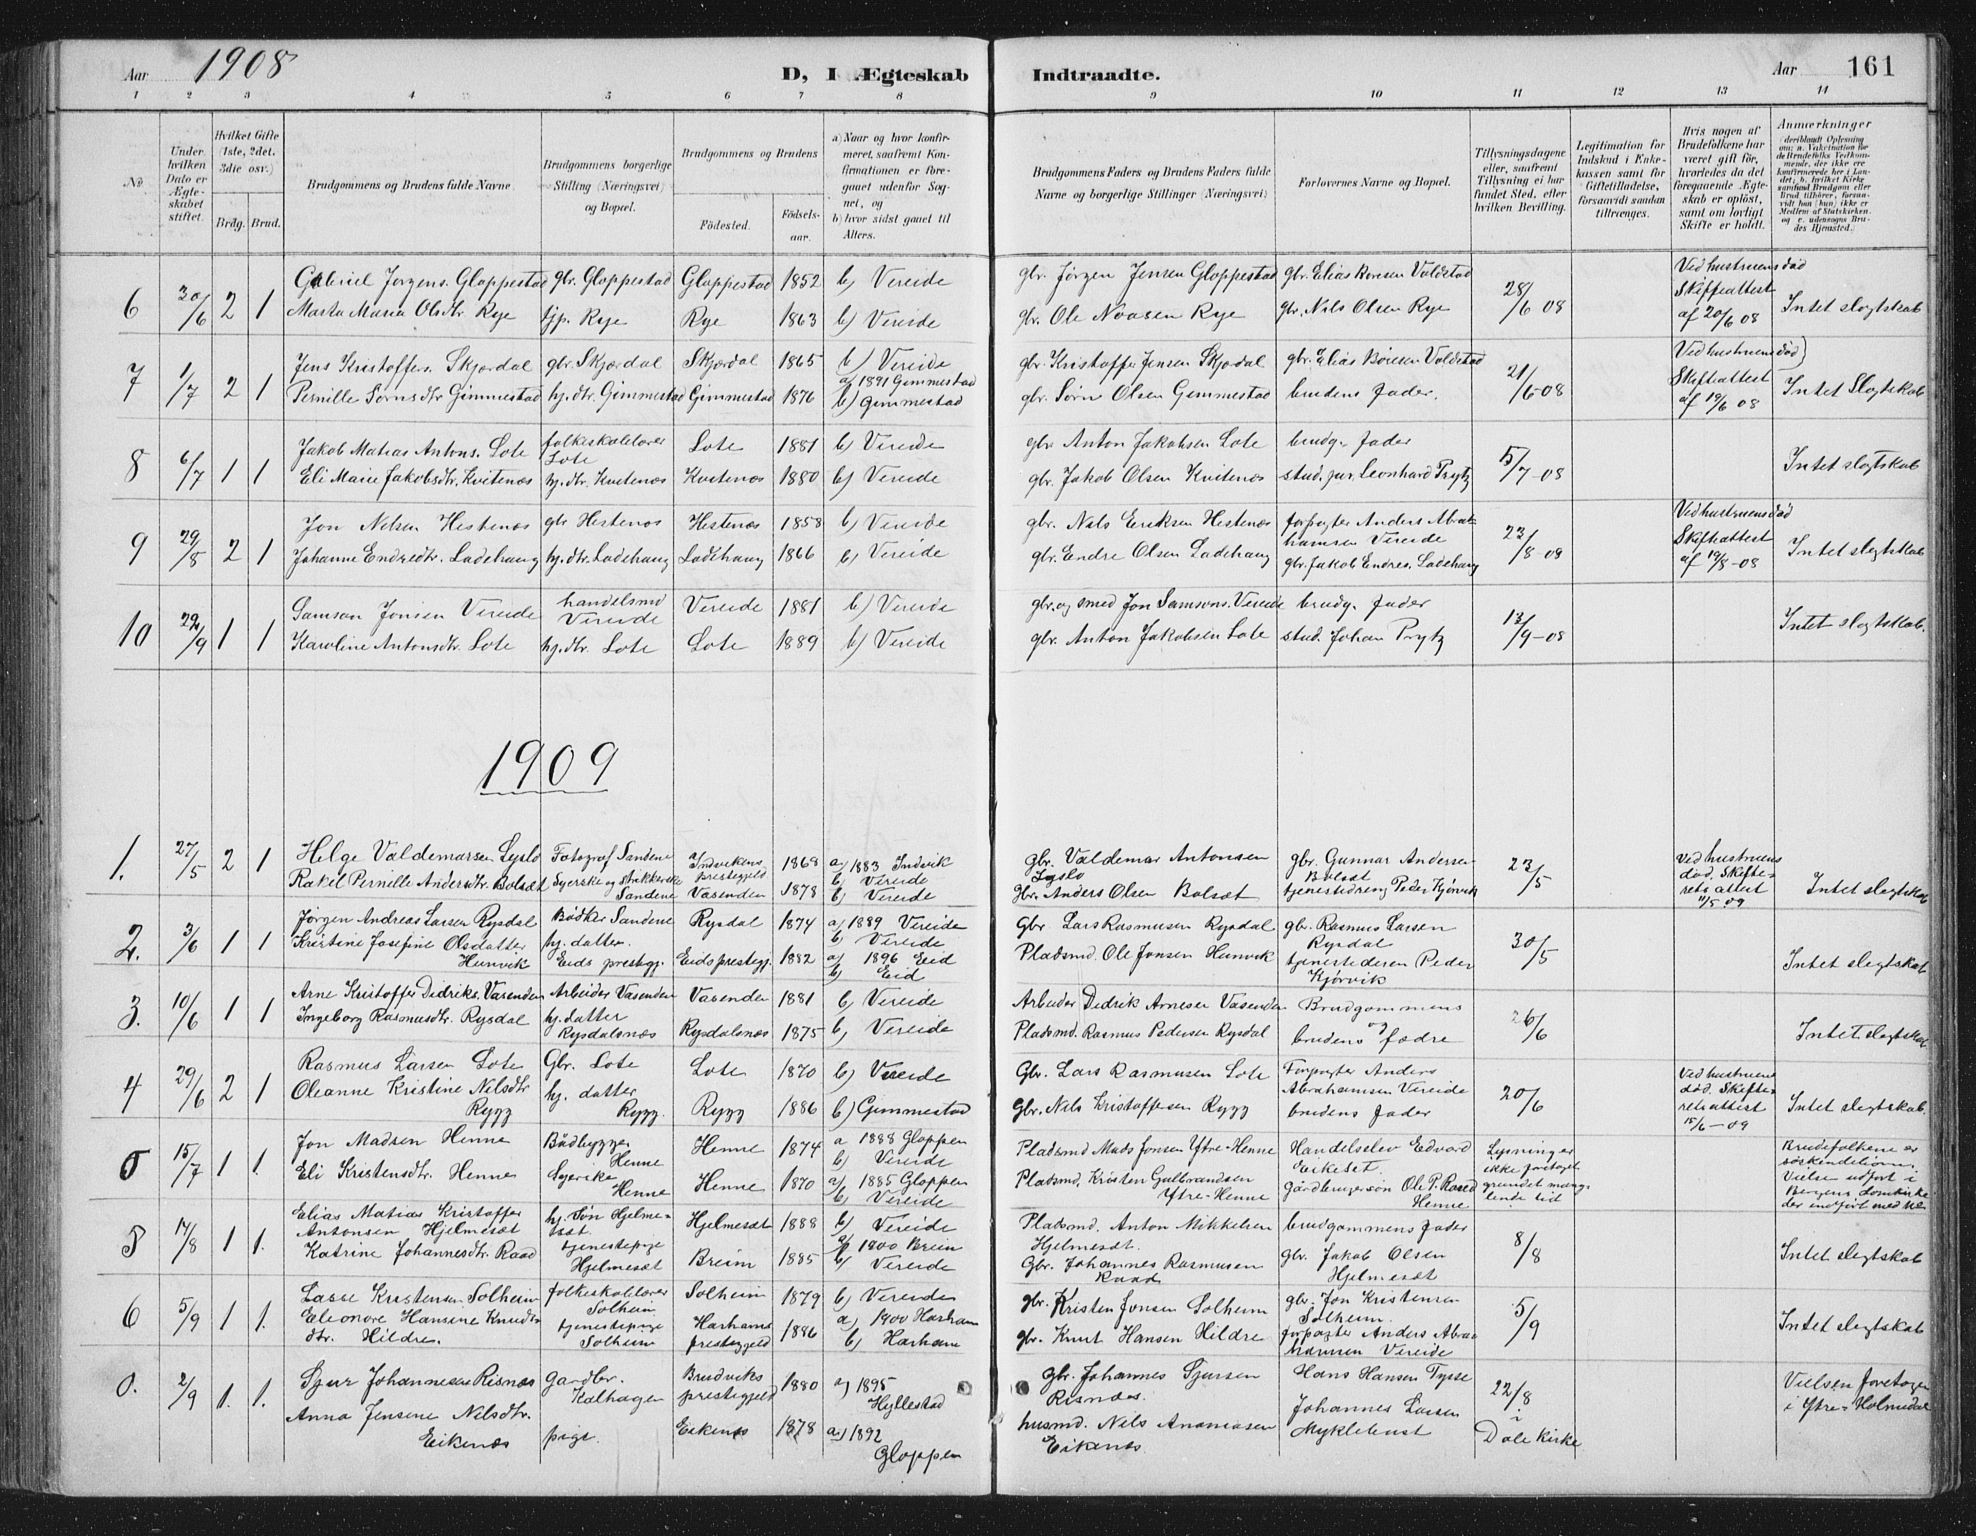 Aar 1908
D, I Ægteskab Indtraadte.
Aar 161
1 2 3 4 5 6 7 8 9 10 11 12 13 14
No.
Under hvilken Dato er Ægteskabet stiftet.
Hvilket Gifte (1ste, 2det, 3die osv.)
Brdg. Brud.
Brudgommens og Brudens fulde Navne.
Brudgommens borgerlige Stilling (Næringsvei) og Bopæl.
Brudgommens og Brudens
Fødested.
Fødselsaar.
a) Naar og hvor konfirmeret, saafremt Konfirmationen er foregaaet udenfor Sognet, og
b) hvor sidst gaaet til Alters.
Brudgommens Faders og Brudens Faders fulde Navne og borgerlige Stillinger (Næringsvei)
Forlovernes Navne og Bopæl.
Tillysningsdagene eller, saafremt Tillysning ei har fundet Sted, efter hvilken Bevilling.
Legitimation for Indskud i Enkekassen samt for Giftetilladelse, forsaavidt saadan tiltrænges.
Hvis nogen af Brudefolkene har været gift før, hvorledes da det foregaaende Ægteskab er opløst, samt om lovligt Skifte er holdt.
Anmærkninger
6 30/6 2 1 Gabriel Jørgens. Gloppestad gbr. Gloppestad Gloppestad 1852 b) Vereide gbr. Jørgen Jensen Gloppestad 28/6 08 Ved hustruens død
Marta Maria Olsdtr. Rye Rye Rye 1863 b) Vereide gbr. Ole Noasen Rye gbr. Nils Olsen Rye af 20/6 08 Intet slegtskab
7 1/7 2 1 Jens Kristoffers. Skjørdal gbr Skjørdal Skjørdal 1865 b) Vereide gbr. Kristoffer Jensen Skjørdal 21/6-08 Ved hustruens død
Pernille Sørnsdtr Gimmestad hj. dtr. Gimmestad Gimmestad 1876 a) 1891 Gimmestad b) Gimmestad gbr. Sørn Olsen Gimmestad brudens fader. Skifteattest af 19/6 08 Intet Slegtskab
8 6/7 1 1 Jakob Matias Antons. Lote folkeskolelærer Lote Lote 1881 b) Vereide gbr Anton Jakobsen Lote brudg. fader 5/7-08 Intet slegtskab
Eli Marie Jakobsdtr. Kvitenes hj. dtr. Kvitenes Kvitenes 1880 b) Vereide gbr. Jakob Olsen Kvitenes stud. jur. Leonhard Prytz
9 29/8 2 1 Jon Nilsen Hestenes gbr Hestenes Hestenes 1858 b) Vereide gbr. Nils Eriksen Hestenes forpagter Anders Abrahamsen Vereide 23/8 08 Ved hustruens død
Johanne Endredtr. Ladehaug hj. dtr. Ladehaug Ladehaug 1866 b) Vereide gbr. Endre Olsen Ladehaug gbr. Jakob Endres. Ladehaug Skifteattest af 19/8-08 Intet slegtskab
10 22/9 1 1 Samson Jonsen Vereide handelsmd Vereide Vereide 1881 b) Vereide gbr. og smed Jon Samsons. Vereide brudg. fader 13/9-08 Intet slegtskab.
Karoline Antonsdtr. Lote hj. dtr. Lote Lote 1889 b) Vereide gbr. Anton Jakobsen Lote stud. Johan Prytz
1909
1. 27/5 2 1 Helge Valdemarsen Lyslo Fotograf Sandene Indvikens prestegjeld 1868 a) 1883 Indvik b) Vereide gbr. Valdemar Antonsen Lyslo gbr. Gunnar Andersen Bolsæt 23/5 Ved hustruens død. Skifteretsattest 11/5 09
Rakel Pernille Andersdtr. Bolsæt Sandene Vasenden 1878 b) Vereide Gbr. Anders Olsen Bolsæt tjenestedreng Peder Kjørvik Intet slegtskab
2. 3/6 1 1 Jørgen Andreas Larsen Rysdal Bødker Sandene Rysdal 1874 a) 1889 Vereide b) Vereide Gbr Lars Rasmussen Rysdal gbr. Rasmus Larsen Rysdal 30/5
Kristine Josefine Olsdatter Hunvik hj. datter. Eids prestegj. Eids prestegj. 1882 a) 1896 Eid b) Eid Pladsmd. Ole Jonsen Hunvik Peder Kjørvik Intet slegtskab
3. 10/6 1 1 Arne Kristoffer Didriks. Vasenden Arbeider Vasenden Vasenden 1881 b) Vereide Arbeider Didrik Arnesen Vasenden Brudgommens og 26/6
Ingeborg Rasmusdtr. Rysdal hj. datter Rysdalsnes Rysdalsnes 1875 b) Vereide Pladsmd. Rasmus Pedersen Rysdal brudens fædre Intet slegtskab
4 29/6 2 1 Rasmus Larsen Lote Gbr. Lote Lote 1870 b) Vereide Gbr. Lars Rasmusen Lote Forpagter Anders Abrahamsen Vereide 20/6 Ved hustruens død. Skifteretsattest 15/6-09
Oleanne Kristine Nilsdtr Rygg hj. datter Rygg. Rygg 1886 b) Gimmestad Gbr. Nils Kristoffersen Rygg brudens fader Intet slegtskab
5 15/7 1 1. Jon Madsen Henne Henne Henne 1874 a 1888 Gloppen b) Vereide Pladsmd Mads Jonsen Ytre-Henne Handelselev Edvard Eikeset. Lysning er ikke foretaget grundet manglende tid
Eli Kristensdtr. Henne Syerske Henne Henne 1870 a) 1885 Gloppen b) Vereide Pladsmd. Kristen Gulbrandsen Ytre-Henne Henne Brudefolkene er søskendebørn. Vielse udført i Bergens Domkirke
5 17/8 1 1. Elias Matias Kristoffer Antonsen Hjelmesæt hj. Søn Hjelmesæt. Hjelmesæt 1888 b) Vereide Pladsmd. Anton Mikkelsen Hjelmesæt. brudgommens fader 8/8
Katrine Johannesdtr. Raad tjenestepige Hjelmesæt Breim 1885 a) 1900 Breim b) Vereide Gbr. Johannes Rasmusen Raad gbr. Jakob Olsen Hjelmesæt Intet slegtskab
6 5/9 1 1. Lasse Kristensen Solheim folkeskolelærer Solheim Solheim 1879 b) Vereide gbr. Kristen Jonsen Solheim gbr. Jon Kristensen Solheim. 5/9
Eleonore Hansine Knudsdtr. Hildre. tjenestepige Solheim Harhams prestegjeld 1886 a) 1900 Harham b) Harham gbr. Knut Hansen Hildre forpagter Anders Abrahamsen Vereide Intet slegtskab
0. 2/9 1. 1. Sjur Johannesen Risnes gardbr. Brudviks prestegjeld 1880 a) 1895 Hyllestad gbr. Johannes Sjursen Risnes. Hans Hansen Tysse 22/8 i Dale kirke Vielsen foretagen i Ytre-Holmedal
Anna Jensine Nilsdtr. Eikenæs pige. Eikenes 1878 a) 1892 Gloppen husmd. Nils Eikenes Johannes Larsen Myklebust